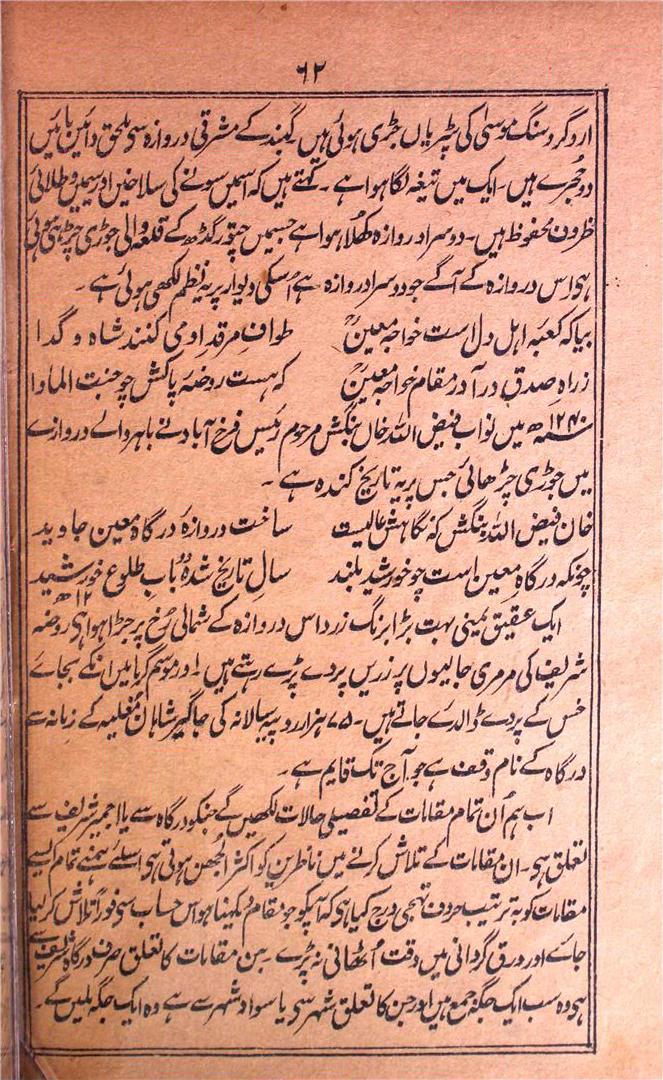 ۶۲
اردگرد سنگ موسیٰ کی پٹریاں جڑی ہوئی ہیں۔ گنبد کے مشرقی دروازہ سی ملحق دائیں بائیں
دو حُجرے ہیں۔ ایک میں تیغہ لگا ہوا ہے۔ کہتے ہیں کہ اسمیں سونے کی سلاخیں اور سیمیں و طلائی
ظروف محفوظ ہیں۔ دوسرا دروازہ کھُلا ہوا ہے جسمیں چتورگڈھ کے قلعہ والی جوڑی چڑھی ہوئی
ہی اس دروازہ کے آگے جو دوسرا دروازہ ہے اُسکی دیوار پر یہ نظم لکھی ہوئی ہے۔
بیا کہ کعبہ اہل دل است خواجہ معینؒ طواف مرقد او می کنند شاہ و گدا
زراہِ صدق درآ در مقام خواجہ معینؒ کہ ہست روضہ پاکش چو جنت الماوا
۱۲۴۰ھ میں نواب فیض اللہ خاں بنگش مرحوم رئیس فرخ آباد نے باہر والے دروازے
میں جوڑی چڑھائی جس پر یہ تاریخ کندہ ہے۔
خان فیض اللہ بنگش کہ نگاہش عالیست ساخت دروازہ درگاہ معین جاوید
چونکہ درگاہِ معین است چو خورشید بلند سالِ تاریخ شدہ دو باب طلوع خورشید
۱۲ھ
ایک عقیق یمنی بہت بڑا برنگ زرد اس دروازہ کے شمالی رُخ پر جڑا ہوا ہی روضہ
شریف کی مرمری جالیوں پر زریں پردے پڑے رہتے ہیں۔ اور موسم گرما میں انکے بجائے
خس کے پردے ڈالدئے جاتے ہیں۔ ۷۵ ہزار روپیہ سالانہ کی جاگیر شاہان مُغلیہ کے زمانہ سے
درگاہ کے نام وقف ہے جو آج تک قایم ہے۔
اب ہم اُن تمام مقامات کے تفصیلی حالات لکھیں گے جنکو درگاہ سے یا اجمیر شریف سے
تعلق ہی۔ ان مقامات کے تلاش کرنے میں ناظرین کو اکثر اُلجھن ہوتی ہی اسلئے ہمنے تمام ایسے
مقامات کو بہ ترتیب حروف تہجی درج کیا ہی کہ آپکو جو مقام دیکھنا ہو اس حساب سی فوراً تلاش کر لیا
جائے اور ورق گردانی میں دقت اُٹھانی نہ پڑے۔ جن مقامات کا تعلق صرف درگاہ شریف سے
ہی وہ سب ایک جگہ جمع ہیں اور جن کا تعلق شہر سی یا سواد شہر سے ہے وہ ایک جگہ ملیں گے۔